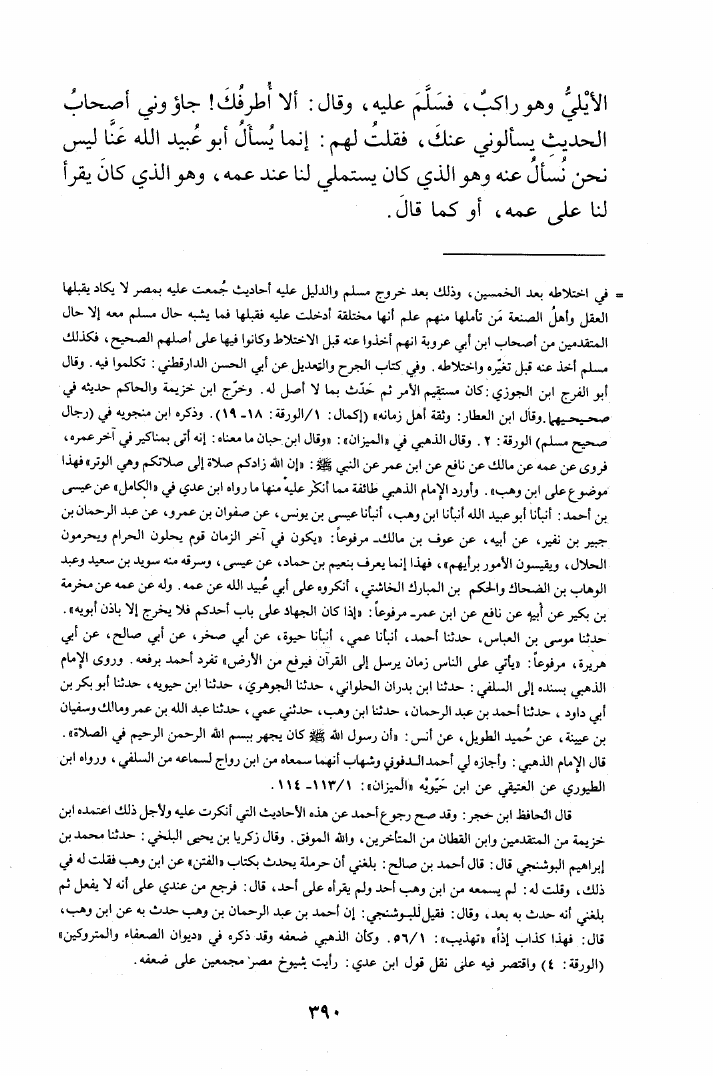 الأيْليُّ وهو راكبٌ، فسَلَّمَ عليه، وقال: ألا أُطرفُكَ! جاؤوني أصحابُ
الحديثِ يسألوني عنكَ، فقلتُ لهم: إنما يُسألُ أبو عُبيد الله عَنَّا ليس
نحن نُسألُ عنه وهو الذي كان يستملي لنا عند عمه، وهو الذي كانَ يقرأ
لنا على عمه، أو كما قالَ.
= في اختلاطه بعد الخمسين، وذلك بعد خروج مسلم والدليل عليه أحاديث جُمعت عليه بمصر لا يكاد يقبلها
العقل وأهلُ الصنعة مَن تأملها منهم علم أنها مختلقة أدخلت عليه فقبلها فما يشبه حال مسلم معه إلا حال
المتقدمين من أصحاب ابن أبي عروبة انهم أخذوا عنه قبل الاختلاط وكانوا فيها على أصلهم الصحيح، فكذلك
مسلم أخذ عنه قبل تغيّره واختلاطه. وفي كتاب الجرح والتعديل عن أبي الحسن الدارقطني: تكلموا فيه. وقال
أبو الفرج ابن الجوزي: كان مستقيم الأمر ثم حَدّث بما لا أصل له. وخرّج ابن خزيمة والحاكم حديثه في
صحيحيهما. وقال ابن العطار: وثقة أهل زمانه» (إكمال: ١/الورقة: ١٨-١٩). وذكره ابن منجويه في (رجال
صحيح مسلم) الورقة: ٢. وقال الذهبي في «الميزان»: «وقال ابن حبان ما معناه: إنه أتى بمناكير في آخر عمره،
فروى عن عمه عن مالك عن نافع عن ابن عمر عن النبي ﷺ: «إن الله زادكم صلاة إلى صلاتكم وهي الوتر» فهذا
موضوع على ابن وهب». وأورد الإمام الذهبي طائفة مما أنكر عليه منها ما رواه ابن عدي في «الكامل» عن عيسى
بن أحمد: أنبأنا أبو عبيد الله أنبأنا ابن وهب، أنبأنا عيسى بن يونس، عن صفوان بن عمرو، عن عبد الرحمان بن
جبير بن نفير، عن أبيه، عن عوف بن مالك- مرفوعاً: «يكون في آخر الزمان قوم يحلون الحرام ويحرمون
الحلال، ويقيسون الأمور برأيهم»، فهذا إنما يعرف بنعيم بن حماد، عن عيسى، وسرقه منه سويد بن سعيد وعبد
الوهاب بن الضحاك والحكم بن المبارك الخاشتي، أنكروه على أبي عُبيد الله عن عمه. وله عن عمه عن مخرمة
بن بكير عن أبيه عن نافع عن ابن عمر- مرفوعاً: «إذا كان الجهاد على باب أحدكم فلا يخرج إلا باذن أبويه».
حدثنا موسى بن العباس، حدثنا أحمد، أنبأنا عمي، أنبأنا حيوة، عن أبي صخر، عن أبي صالح، عن أبي
هريرة، مرفوعاً: «يأتي على الناس زمان يرسل إلى القرآن فيرفع من الأرض» تفرد أحمد برفعه. وروى الإمام
الذهبي بسنده إلى السلفي: حدثنا ابن بدران الحلواني، حدثنا الجوهري، حدثنا ابن حيويه، حدثنا أبو بكر بن
أبي داود، حدثنا أحمد بن عبد الرحمان، حدثنا ابن وهب، حدثني عمي، حدثنا عبد الله بن عمر ومالك وسفيان
بن عيينة، عن حُميد الطويل، عن أنس: «أن رسول الله ﷺ كان يجهر ببسم الله الرحمن الرحيم في الصلاة».
قال الإمام الذهبي: وأجازه لي أحمد الدفوني وشهاب أنهما سمعاه من ابن رواج لسماعه من السلفي، ورواه ابن
الطيوري عن العتيقي عن ابن حَيّويْه «الميزان»: ١/١١٣-١١٤.
قال الحافظ ابن حجر: وقد صح رجوع أحمد عن هذه الأحاديث التي أنكرت عليه ولأجل ذلك اعتمده ابن
خزيمة من المتقدمين وابن القطان من المتأخرين، والله الموفق. وقال زكريا بن يحيى البلخي: حدثنا محمد بن
إبراهيم البوشنجي قال: قال أحمد بن صالح: بلغني أن حرملة يحدث بكتاب «الفتن» عن ابن وهب فقلت له في
ذلك، وقلت له: لم يسمعه من ابن وهب أحد ولم يقرأه على أحد، قال: فرجع من عندي على أنه لا يفعل ثم
بلغني أنه حدث به بعد، وقال: فقيل للبوشنجي: إن أحمد بن عبد الرحمان بن وهب حدث به عن ابن وهب،
قال: فهذا كذاب إذاً» «تهذيب»: ١/٥٦. وكأن الذهبي ضعفه وقد ذكره في «ديوان الضعفاء والمتروكين»
(الورقة: ٤) واقتصر فيه على نقل قول ابن عدي: رأيت شيوخ مصر مجمعين على ضعفه.
٣٩٠